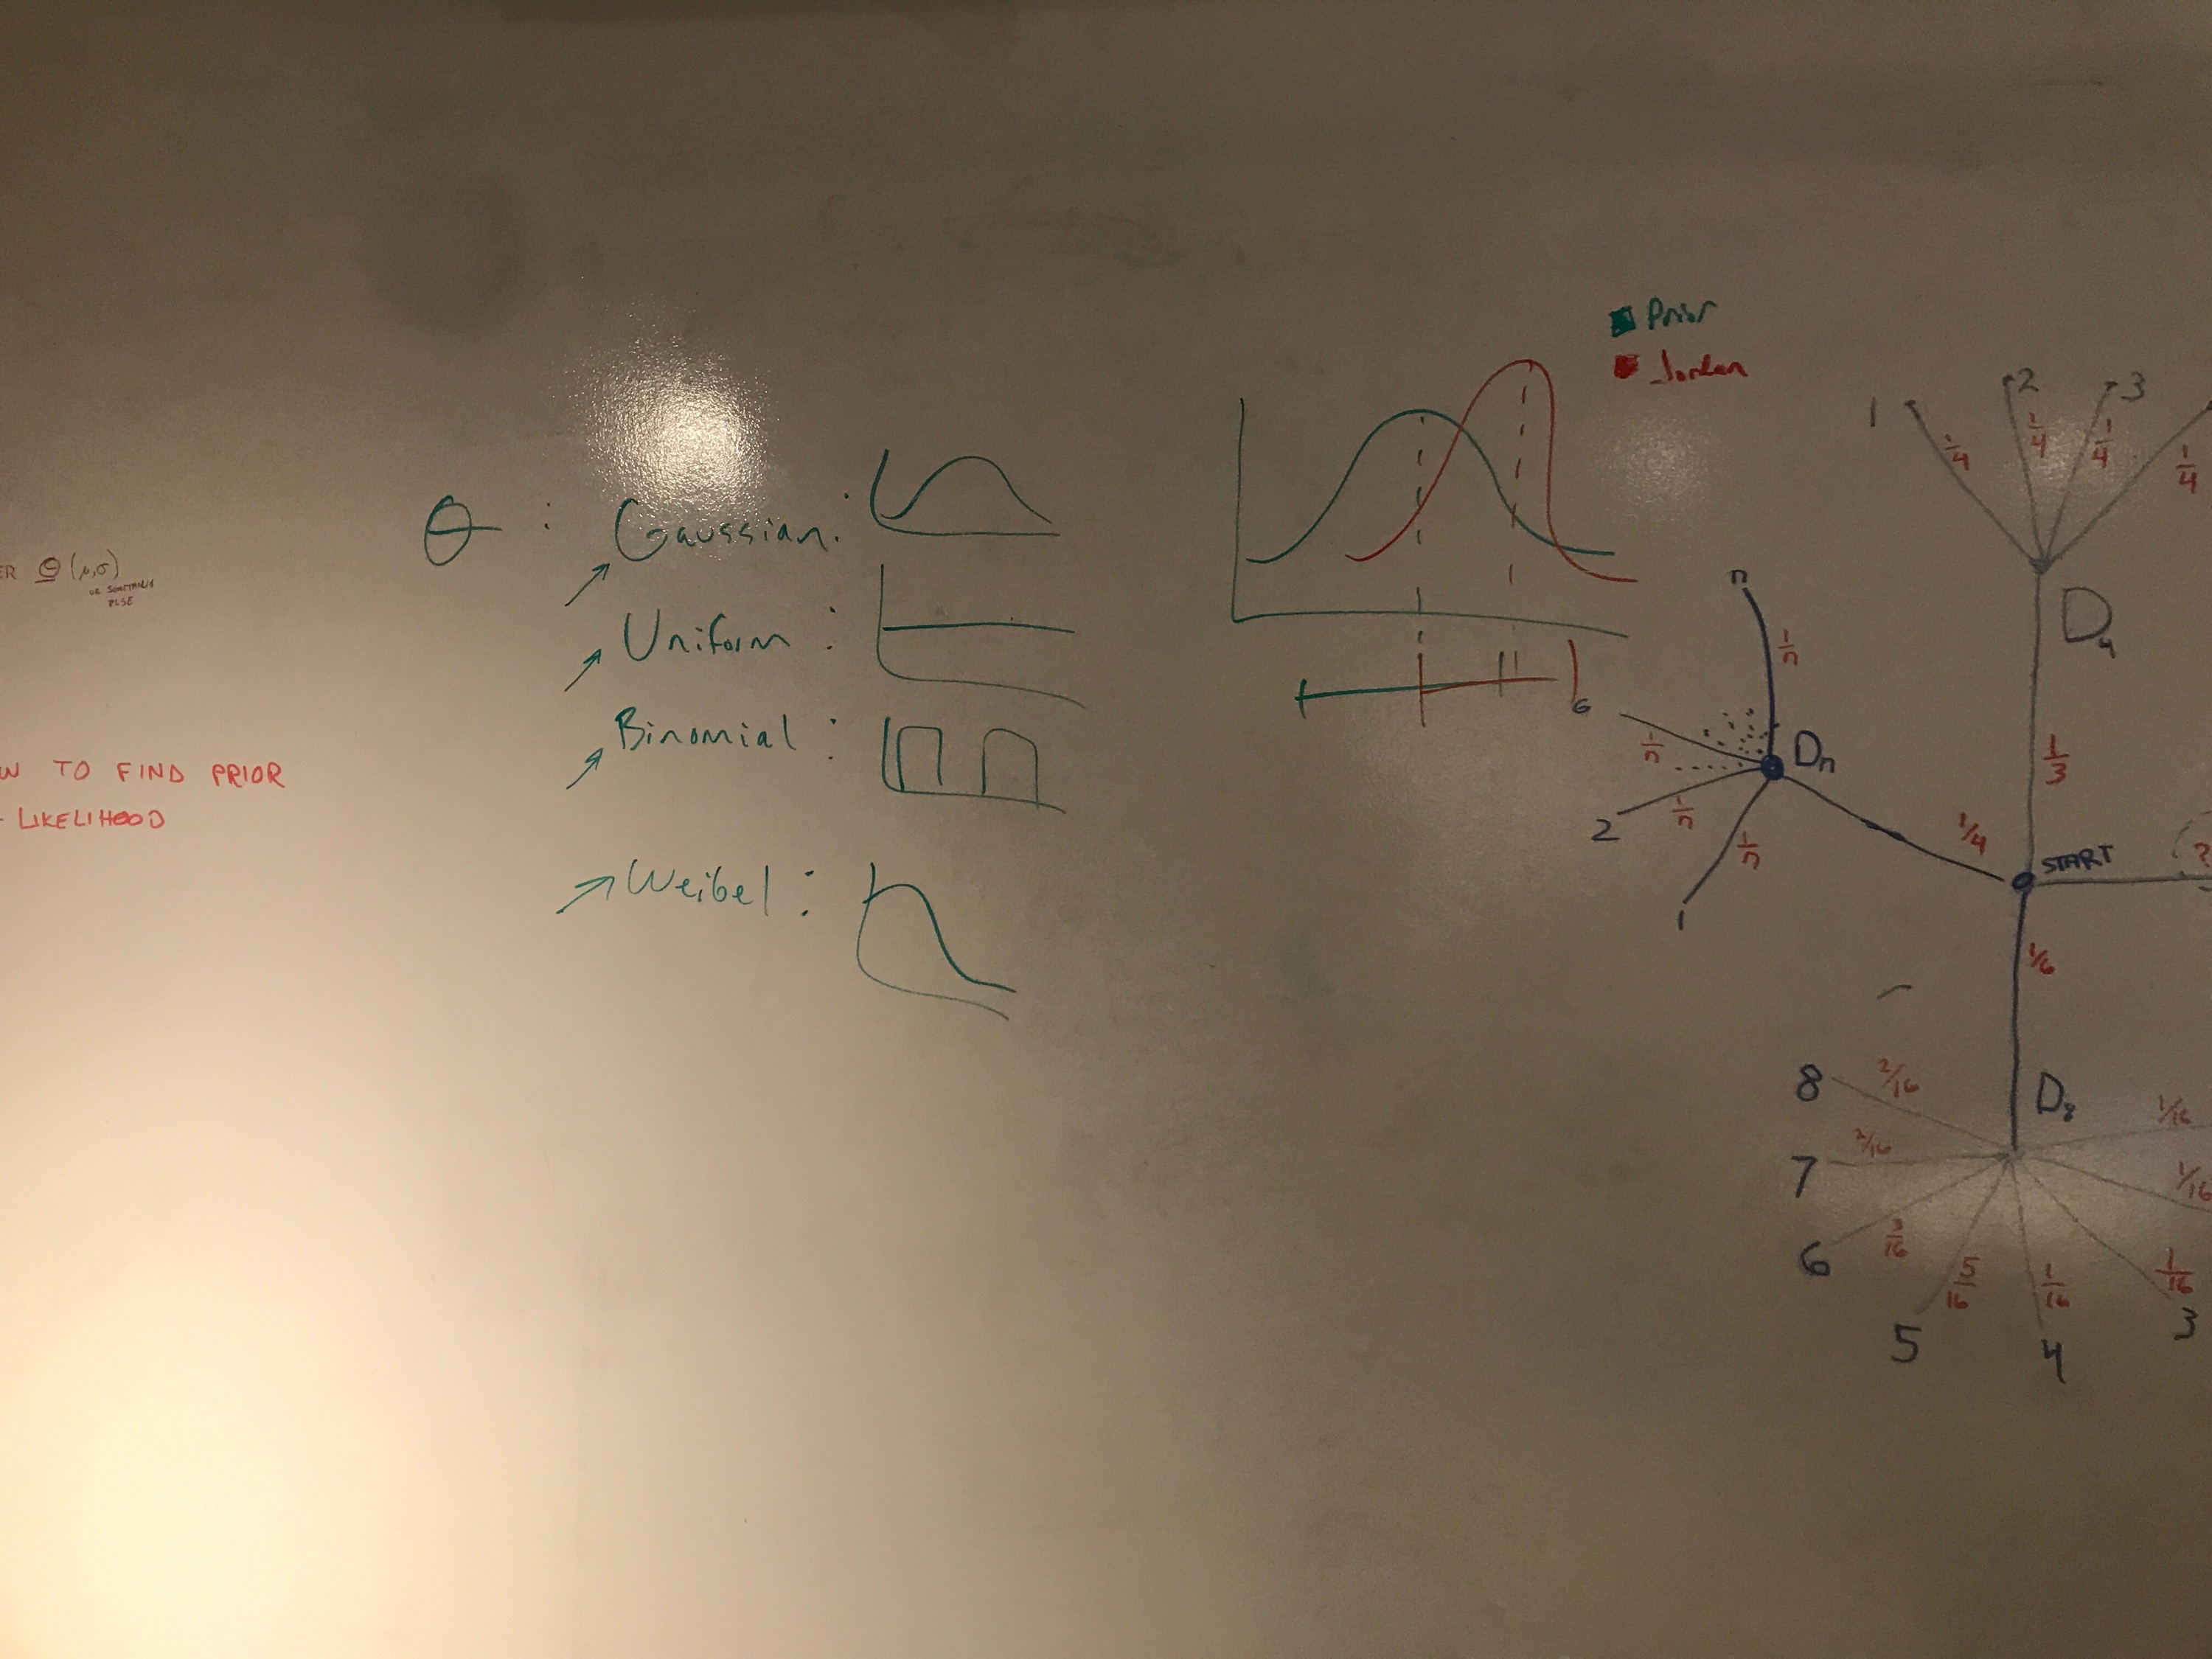 ER Θ (μ,σ)
OR SOMETHING
ELSE
W TO FIND PRIOR
- LIKELIHOOD
Θ : Gaussian:
Uniform :
Binomial :
Weibel :
Prior
Jordan
1 2 3
1/4 1/4 1/4 1/4
D4
1/3
n
1/n
6
1/n
Dn
2
1/n
1/n
1
1/4
START
?
1/6
D8
8 2/16
7 2/16
6 3/16
5 5/16
4 1/16
3 1/16
1/16
1/16